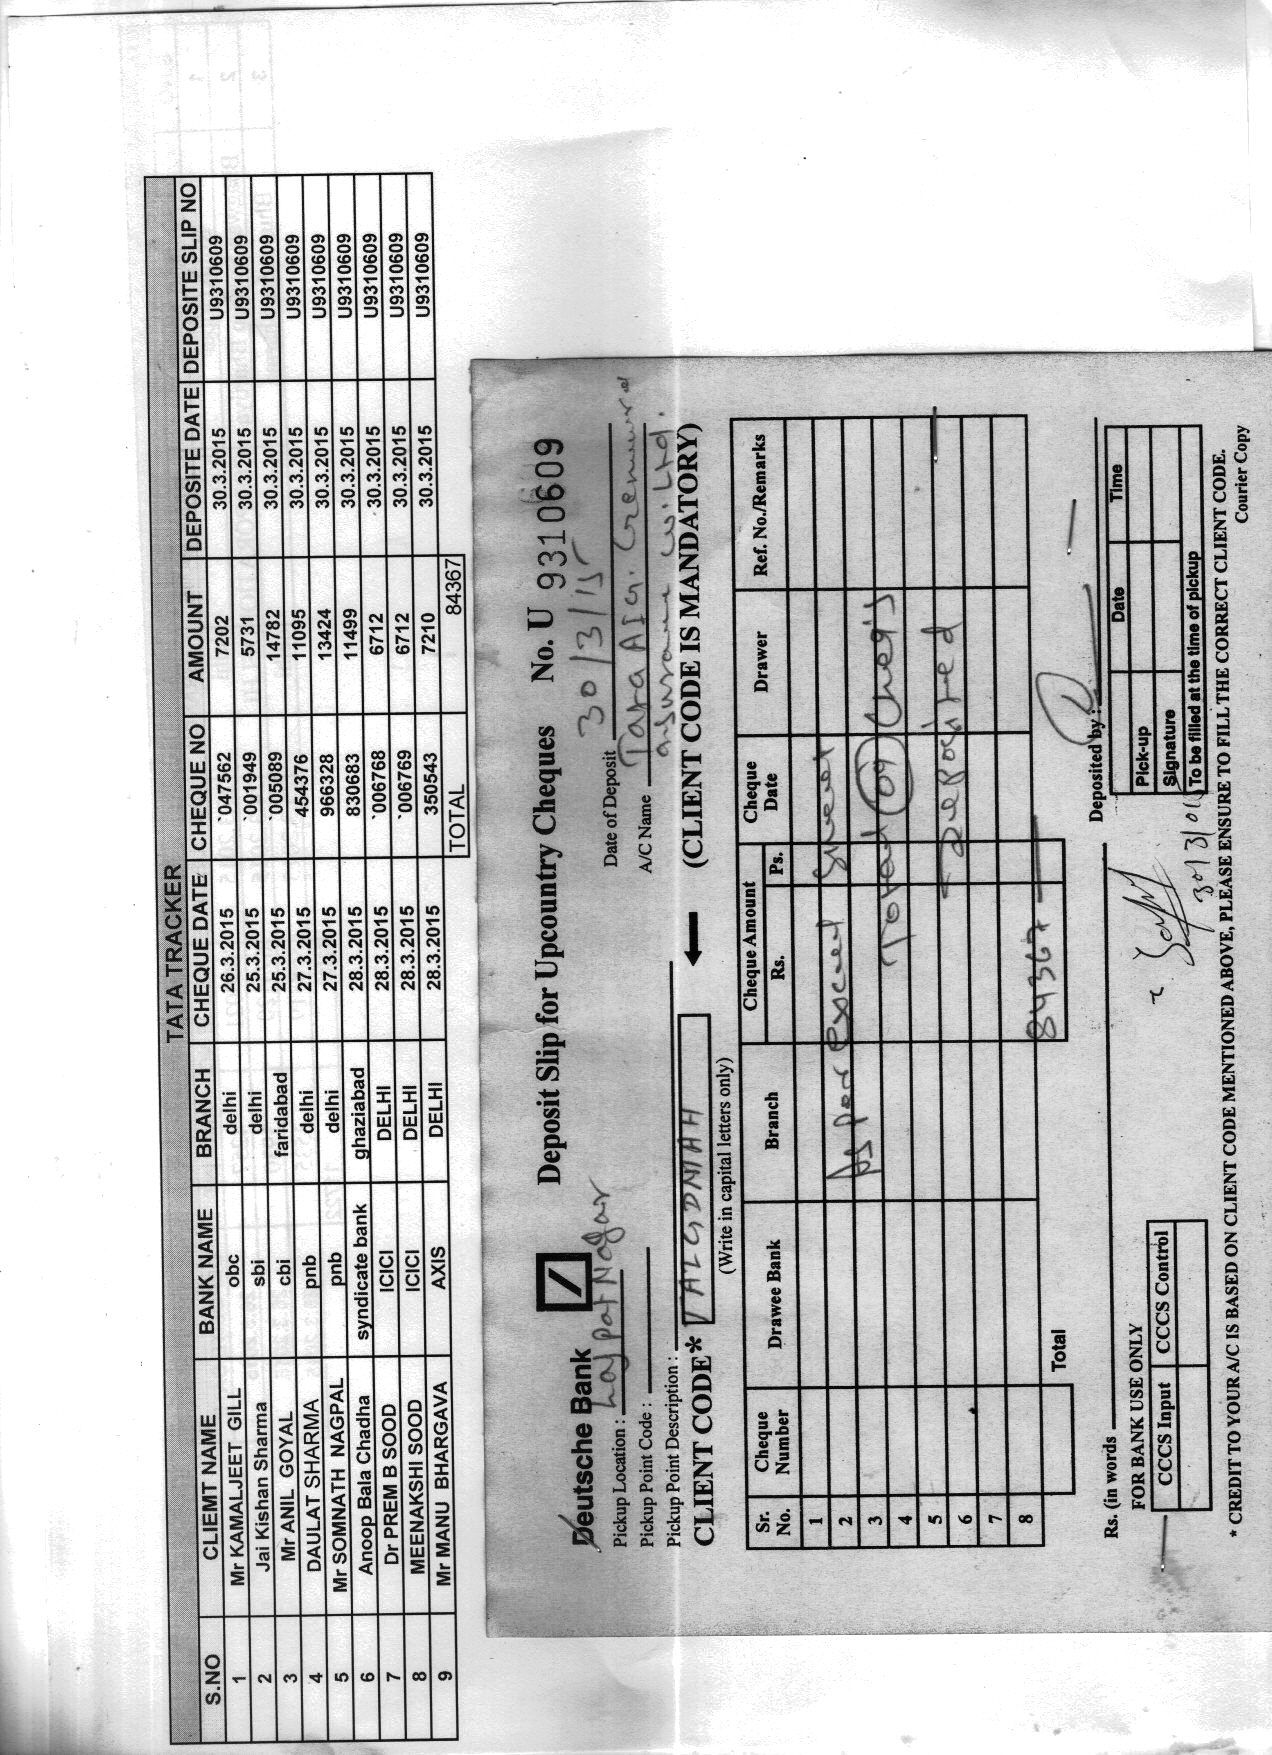 TATA TRACKER
S.NO CLIEMT NAME BANK NAME BRANCH CHEQUE DATE CHEQUE NO AMOUNT DEPOSITE DATE DEPOSITE SLIP NO
1 Mr KAMALJEET GILL obc delhi 26.3.2015 `047562 7202 30.3.2015 U9310609
2 Jai Kishan Sharma sbi delhi 25.3.2015 `001949 5731 30.3.2015 U9310609
3 Mr ANIL GOYAL cbi faridabad 25.3.2015 `005089 14782 30.3.2015 U9310609
4 DAULAT SHARMA pnb delhi 27.3.2015 454376 11095 30.3.2015 U9310609
5 Mr SOMNATH NAGPAL pnb delhi 27.3.2015 966328 13424 30.3.2015 U9310609
6 Anoop Bala Chadha syndicate bank ghaziabad 28.3.2015 830683 11499 30.3.2015 U9310609
7 Dr PREM B SOOD ICICI DELHI 28.3.2015 `006768 6712 30.3.2015 U9310609
8 MEENAKSHI SOOD ICICI DELHI 28.3.2015 `006769 6712 30.3.2015 U9310609
9 Mr MANU BHARGAVA AXIS DELHI 28.3.2015 350543 7210 30.3.2015 U9310609
TOTAL 84367
Deutsche Bank Deposit Slip for Upcountry Cheques No. U 9310609
Pickup Location : Lajpat Nagar Date of Deposit 30/3/15
Pickup Point Code : A/C Name Tata AIG. General
Pickup Point Description : Ltd.
CLIENT CODE* (CLIENT CODE IS MANDATORY)
(Write in capital letters only)
Sr. No. Cheque Number Drawee Bank Branch Cheque Amount Rs. Ps. Cheque Date Drawer Ref. No./Remarks
1
2 As per excel sheet
3 Total 09 Cheq's
4
5 deposited
6
7
8
Total 84367
Rs. (in words Deposited by :
FOR BANK USE ONLY
CCCS Input CCCS Control
Date Time
Pick-up
Signature
To be filled at the time of pickup
* CREDIT TO YOUR A/C IS BASED ON CLIENT CODE MENTIONED ABOVE, PLEASE ENSURE TO FILL THE CORRECT CLIENT CODE.
Courier Copy